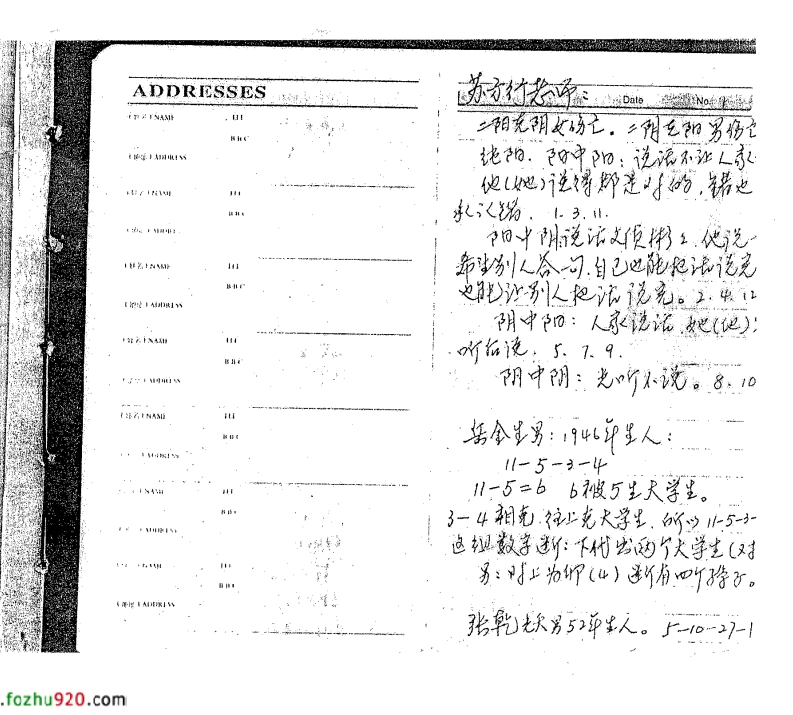 ADDRESSES
(姓名) NAME TEL
B.B.C
(地址) ADDRESS
(姓名) NAME TEL
B.B.C
(地址) ADDRESS
(姓名) NAME TEL
B.B.C
(地址) ADDRESS
(姓名) NAME TEL
B.B.C
ADDRESS
(姓名) NAME TEL
B.B.C
ADDRESS
NAME TEL
B.B.C
ADDRESS
NAME TEL
B.B.C
(地址) ADDRESS
老师:
Date No.
二阳克阴女伤亡。二阴克阳男伤亡
纯阳.阳中阳:说话不让人家
他(她)说得都是对的,错也
承认错. 1.3.11.
阳中阴说话文质彬彬,他说一
希望别人答一句.自己也能把话说完
也能让别人把话说完。2.4.12
阴中阳:人家说话,她(他)
听后说. 5.7.9.
阴中阴:光听不说。8.10
金生男:1946年生人:
11-5-3-4
11-5=6 6被5生大学生。
3-4相克,往上克大学生,所以11-5-3-
这组数字断:下代出两个大学生(对
男:时上为卯(4)断有四个孩子。
张乾 男52年生人。5-10-27-1
.fozhu920.com